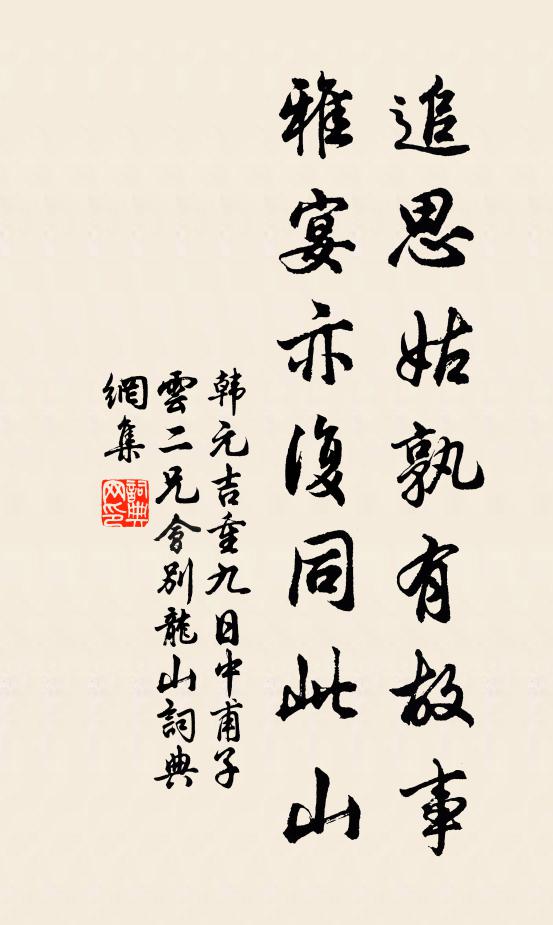 追思姑孰有故事
雅宴亦復同此山
韩元吉重九日中甫子
雲二兄會别龍山詞典
網集
詞典
网印